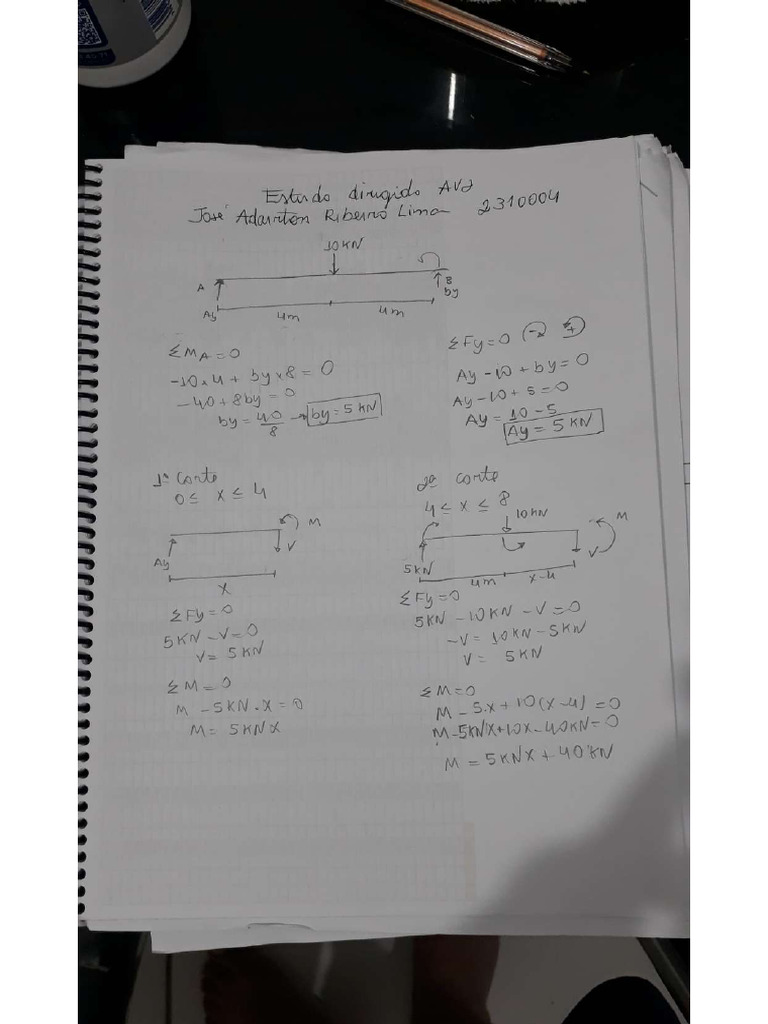 Estudo dirigido AV2
José Adairton Ribeiro Lima 2310004
10KN
A
B
Ay
4m
4m
by
ΣMA=0
-10×4 + by×8 = 0
-40+8by=0
by=40/8 → by=5KN
ΣFy=0 (-) (+)
Ay-10+by=0
Ay-10+5=0
Ay=10-5
Ay=5KN
1º Corte
0≤ x ≤4
M
V
Ay
x
ΣFy=0
5KN-V=0
V=5KN
ΣM=0
M-5KN.x=0
M=5KNX
2º corte
4≤x≤8
10KN
M
V
5KN
4m
x-4
ΣFy=0
5KN-10KN-V=0
-V=10KN-5KN
V= 5KN
ΣM=0
M-5.x+10(x-4)=0
M-5KNX+10x-40KN=0
M=5KNX+40KN